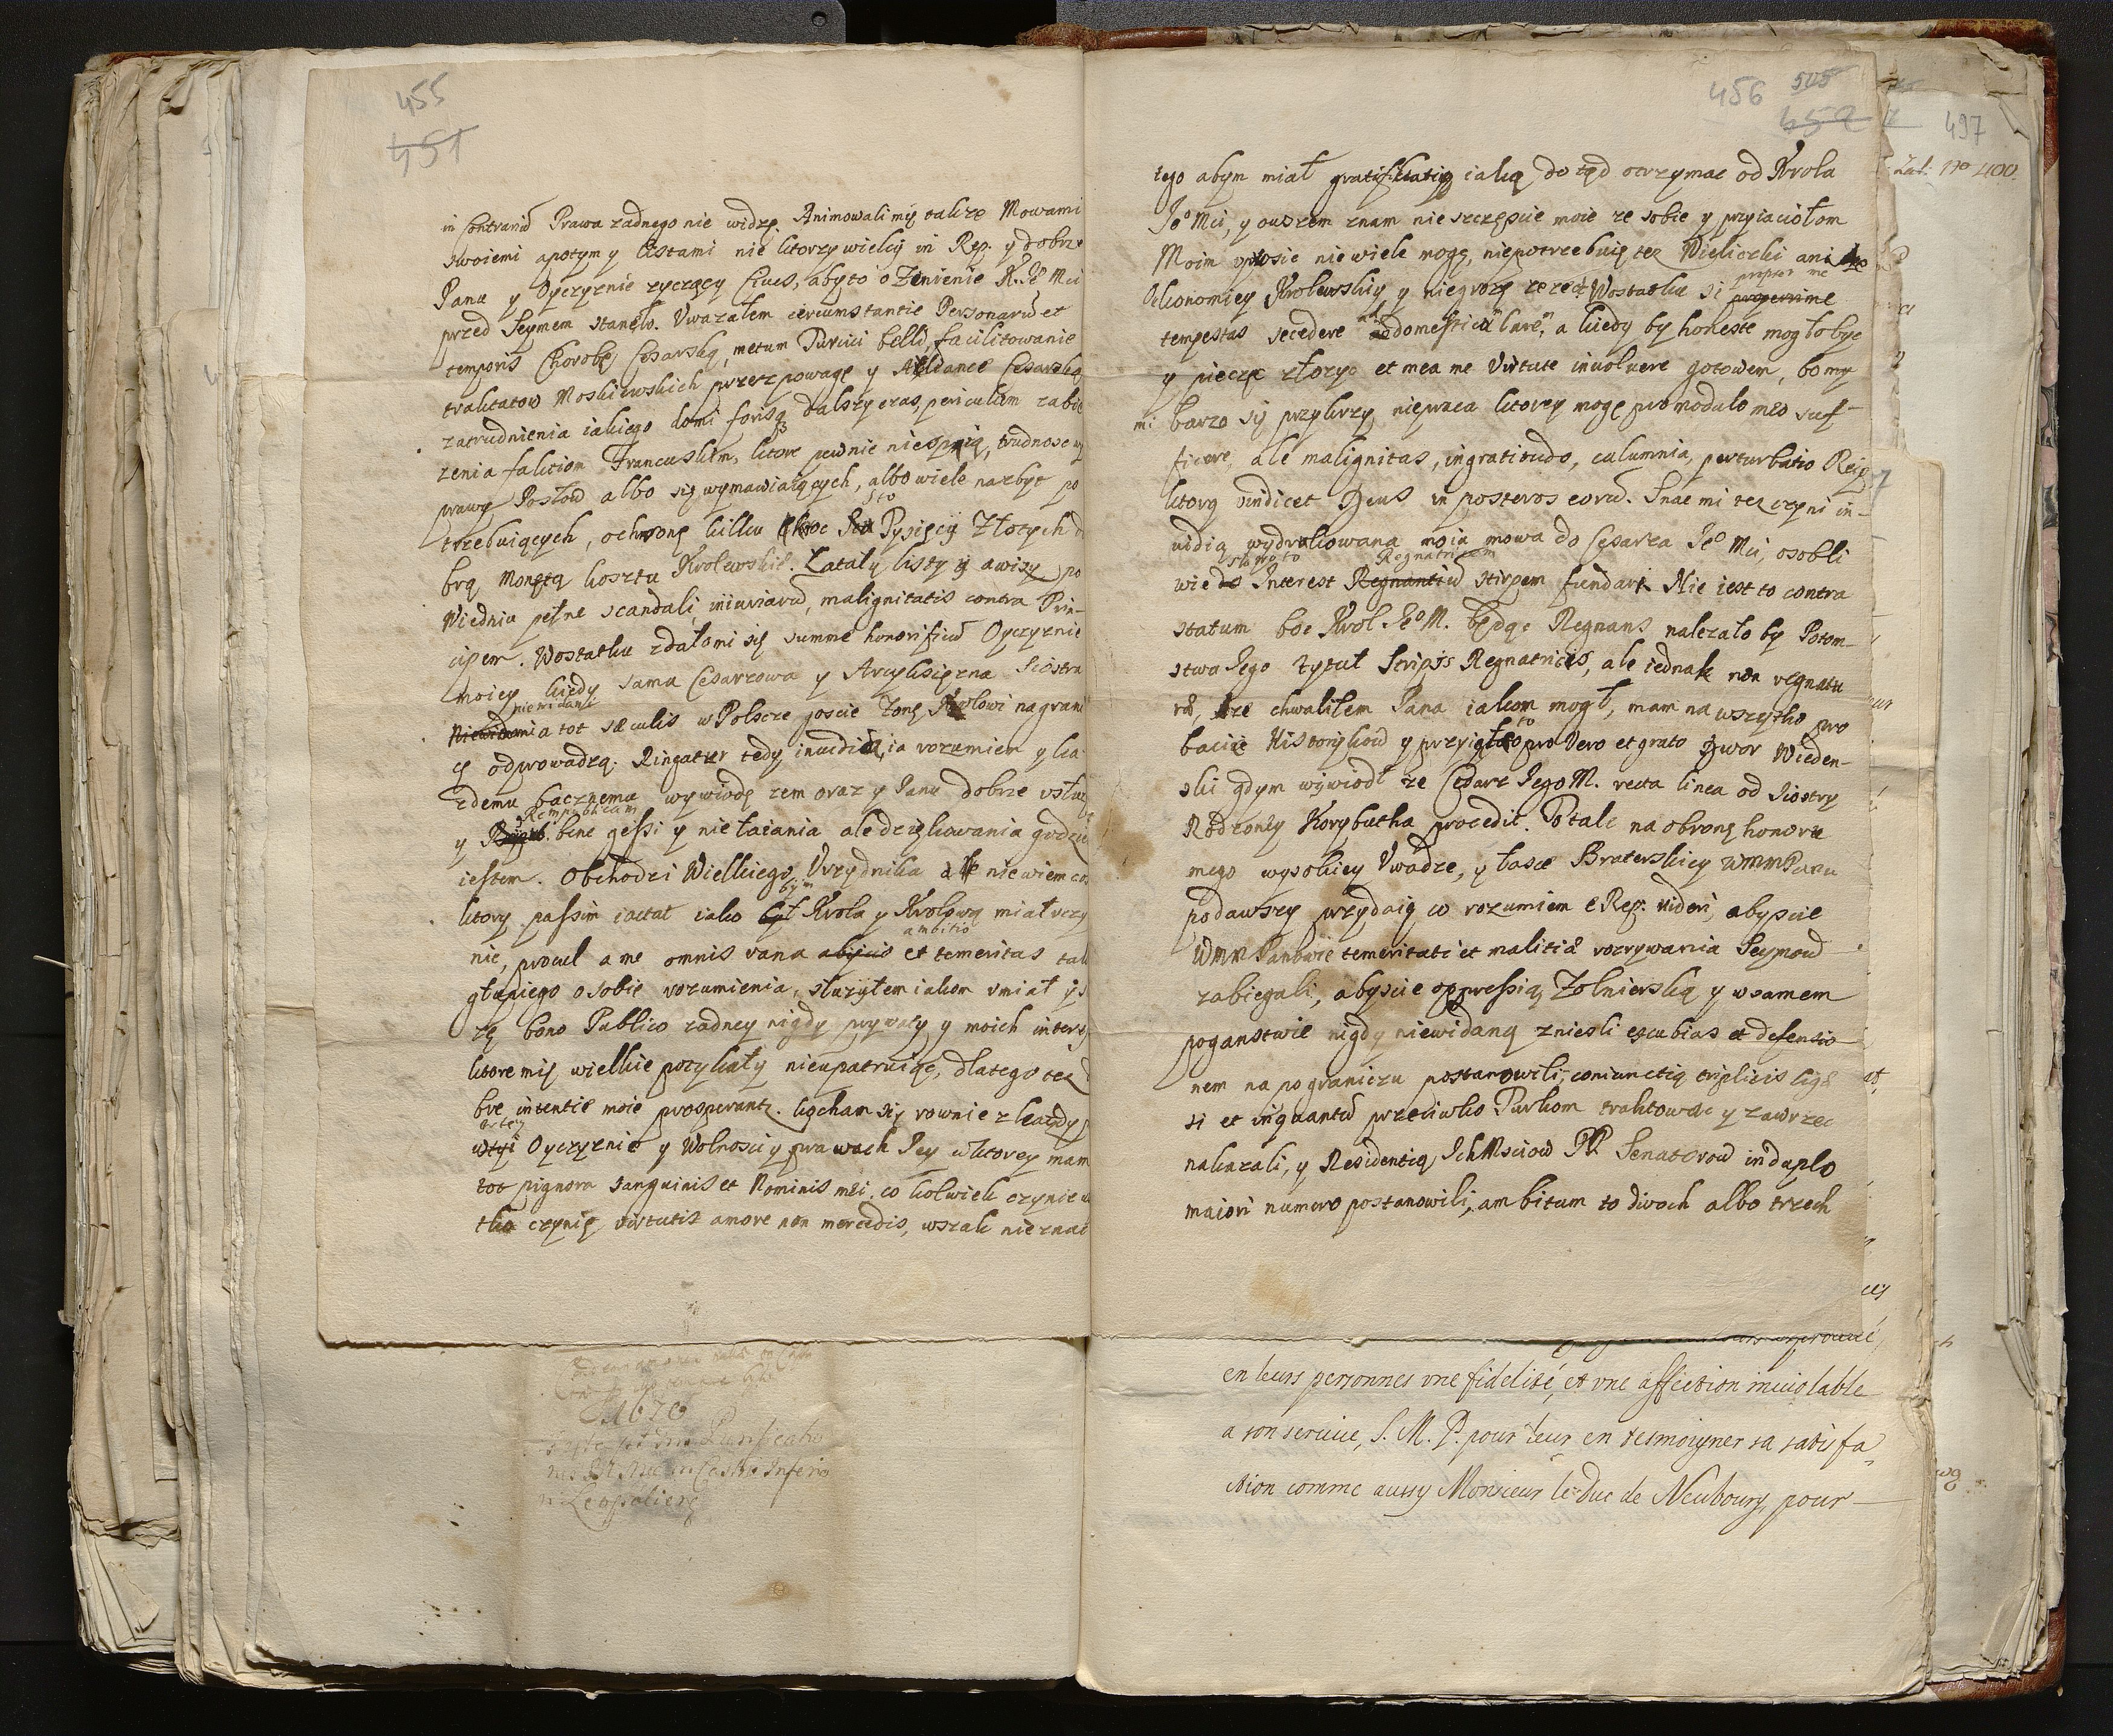 455
451
in contrariū Prawa zadnego nie widzę. Animowali mię takze Mowami
swoiemi apotym y Listami nie ktorzy wielcy in Rep. y dobrze
Panu y Oyczyznie zyczący Cives, aby to oZenienie K. Je Mci
przed Seymem stanęło. Uwazałem circumstantie Personarū et
temporis Chorobę Cesarską, metum Turcici belli, facilitowanie
traktatow Moskiewskich przez powagę y Cesarską
zatrudnienia iakiego domi forisq dalszy czas, periculum zabie
zenia faktiom Francuskim, ktore pewnie nie spią, trudnosc wy
prawy Posłow albo się wymawiaiących, albo wiele nazbyt po
trzebuiących, ochronę kilku kroc Sto Tysięcy Złotych do
brą Monetą kosztu Krolewskie. Latały listy y awizy po
Wiedniu pełne scandali, iniuriarū, malignitatis contra Prin-
cipem. Wostatku zdało mi się summe honorificū Oyczyznie
moiey kiedy sama Cesarzowa y Arcyksięzna Siostra
niewidani a tot sæculis w Polscze goscie Zonę Krolowi na grani
cę odprowadzą. Ringatur tedy invidia, ia rozumiem y ka
zdemu bacznemu wywiodę zem oraz y Panu dobrze usłuz
y Rempublicam bene gessi y nie łaiania ale dziękowania godzien
iestem. Obchodzi Wielkiego Urzędnika nie wiem co
ktory passim iactat iako bym Krola y Krolową miał uczy
nic, procul a me omnis vana ambitio et temeritas tak
głupiego o sobie rozumienia, słuzyłem iakom umiał y s
zę bono Publico zadney nigdy prywaty y moich inters
ktore mię wielkie potykały nieupatruiąc, dlatego tez
bre intentie moie prosperant. Kocham się rownie z kazdy
w tey Oyczyznie y Wolnosci y prawach Jey w ktorey mam
tot pignora sanguinis et Nominis mei, co kolwiek czynie w
tko czynię virtutis amore non mercedis, wszak nie znaie
456 505
452
tego abym miał gratifikatią iaką do tąd otrzymac od Krola
Je⁰ Mci, y owszem znam nieszczęscie moie ze sobie y przyiaciołom
Moim uprosic niewiele mogę, niepotrzebuię tez Wieliczki ani
Oekonomiey Krolewskiy y niegrozę ze Wostatku si propior me
tempestas secedere ad domesticū larē, a kiedy by honeste mogło byc
y pieczęc złozyc et mea me Virtute involvere gotowem, bo my
mi barzo się przykrzy, niepraca ktorey mogę pro modulo meo suf-
ficere, ale malignitas, ingratitudo, calumnia, perturbatio Reip
ktorą vindicet Deus in posteros eorū. Snac mi tez czyni in-
vidią wydrukowana moia mowa do Cesarza Je⁰ Mci, osobli
wie słowo to Interest Regnatricem stirpem fundari. Nie iest to contra
statum boc Krol Je⁰ M. będąc Regnans nalezało by Potom-
stwa Jego tytuł Stirpis Regnatricis, ale iednak non regnatu
ræ, ze chwaliłem Pana iakom mogł, mam na wszytko pro
bacie Historykow y przyięto to pro Vero et grato Dwor Wieden-
ski gdym wywiodł ze Cesarz Jego M. recta linea od Siostry
Rodzoney Korybutha procedit. To tak na obronę honoru
mego wysokiey Uwadze, y łasce Braterskiey WMMPanu
podawszy przydaię co rozumiem e Rep: videri, abyscie
WMM Panowie temeritati et malitiæ rozrywania Seymow
zabiegali, abyscie oppressią Zolnierską y w samem
poganstwie nigdy niewidaną zniesli excubias et defensio
nem na pograniczu postanowili, coniunctią triplicis ligæ
si et inquantū przeciwko Turkom traktowac y zawrzec
nakazali, y Residentią IchMsciow PP. Senatorow in duplo
maiori numero postanowili, ambitum to dwoch albo trzech
497
Zał. No 400.
en leurs personnes une fidelité, et une affection inviolable
a son service, S. M. P. pour leur en tesmoigner sa satisfa
ction comme aussy Monsieur le Duc de Neubourg, pour
1670